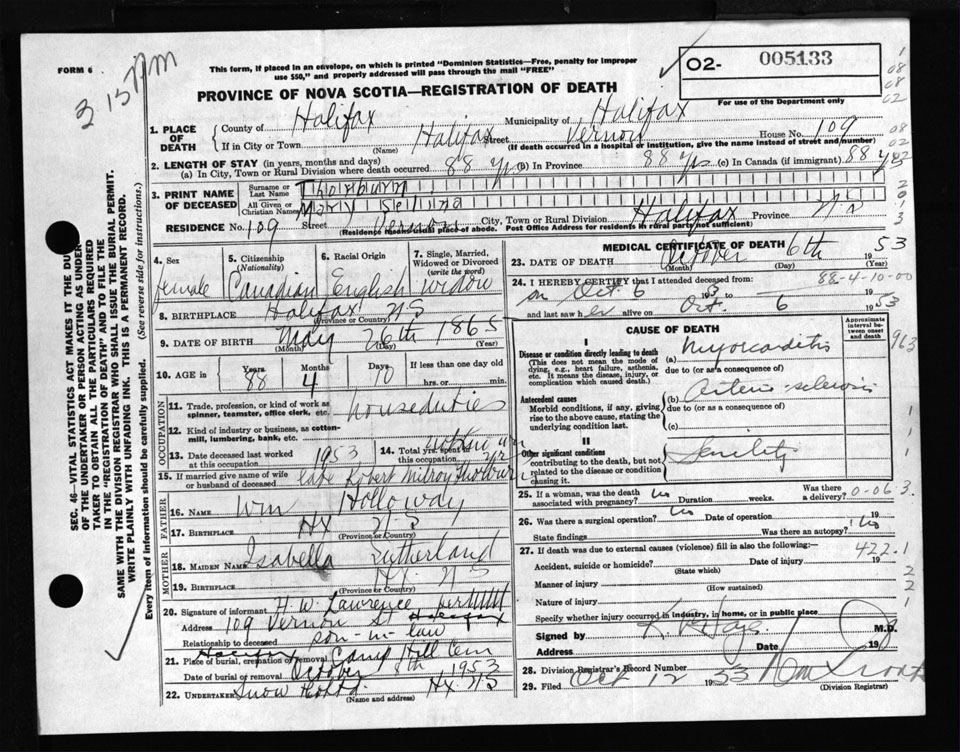 FORM 6
3 15 PM
This form, if placed in an envelope, on which is printed "Dominion Statistics—Free, penalty for improper
use $50," and properly addressed will pass through the mail "FREE"
O2- 005133
For use of the Department only
PROVINCE OF NOVA SCOTIA—REGISTRATION OF DEATH
1. PLACE OF DEATH
County of Halifax Municipality of Halifax
If in City or Town Halifax Street Vernon House No. 109
(Name) (If death occurred in a hospital or institution, give the name instead of street and number)
2. LENGTH OF STAY (in years, months and days)
(a) In City, Town or Rural Division where death occurred 88 yrs (b) In Province 88 yrs (c) In Canada (if immigrant) 88 yrs
3. PRINT NAME OF DECEASED
Surname or Last Name Thorburn
All Given or Christian Names Mary Selina
RESIDENCE No. 109 Street Vernon City, Town or Rural Division Halifax Province N.S
(Residence means usual place of abode. Post Office Address for residents in rural parts not sufficient)
SEC. 46—VITAL STATISTICS ACT MAKES IT THE DUTY
OF THE UNDERTAKER OR PERSON ACTING AS UNDER-
TAKER TO OBTAIN ALL THE PARTICULARS REQUIRED
IN THE "REGISTRATION OF DEATH" AND TO FILE THE
SAME WITH THE DIVISION REGISTRAR WHO SHALL ISSUE THE BURIAL PERMIT.
WRITE PLAINLY WITH UNFADING INK. THIS IS A PERMANENT RECORD.
Every item of information should be carefully supplied. (See reverse side for instructions.)
4. Sex
female
5. Citizenship (Nationality)
Canadian
6. Racial Origin
English
7. Single, Married, Widowed or Divorced (write the word)
widow
8. BIRTHPLACE Halifax N S
(Province or Country)
9. DATE OF BIRTH May 26th 1865
(Month) (Day) (Year)
10. AGE in Years Months Days If less than one day
88 4 10 hrs. or min.
OCCUPATION
11. Trade, profession, or kind of work as spinner, teamster, office clerk, etc. houseduties
12. Kind of industry or business, as cotton-mill, lumbering, bank, etc.
13. Date deceased last worked at this occupation 1953
14. Total yrs. spent in this occupation
15. If married give name of wife or husband of deceased Robert Milroy Thorburn
FATHER
16. NAME Wm Holloway
17. BIRTHPLACE Hx N S
(Province or Country)
MOTHER
18. MAIDEN NAME Isabella Sutherland
19. BIRTHPLACE Hx N S
(Province or Country)
20. Signature of informant H. W. Lawrence per
Address 109 Vernon St Halifax
Relationship to deceased son-in-law
21. Place of burial, cremation or removal Halifax Camp Hill Cem
Date of burial or removal October 8th 1953
22. Undertaker Snow Hx N S
(Name and address)
MEDICAL CERTIFICATE OF DEATH
23. DATE OF DEATH October 6th 53
(Month) (Day) (Year)
24. I HEREBY CERTIFY that I attended deceased from: 88-4-10-00
on Oct. 6 19 53
and last saw her alive on Oct. 6 1953
CAUSE OF DEATH
Approximate interval between onset and death
I
Disease or condition directly leading to death
(This does not mean the mode of dying, e.g., heart failure, asthenia, etc. It means the disease, injury, or complication which caused death.)
(a) Myocarditis
due to (or as a consequence of)
Antecedent causes
Morbid conditions, if any, giving rise to the above cause, stating the underlying condition last.
(b) Arterio-sclerosis
due to (or as a consequence of)
(c)
II
Other significant conditions
contributing to the death, but not related to the disease or condition causing it.
Senility
25. If a woman, was the death associated with pregnancy? No Duration weeks. Was there a delivery? 0-06.3
26. Was there a surgical operation? No Date of operation 19
State findings Was there an autopsy? No
27. If death was due to external causes (violence) fill in also the following:— 422.1
Accident, suicide or homicide? Date of injury 19
(State which)
Manner of injury
(How sustained)
Nature of injury
Specify whether injury occurred in industry, in home, or in public place
Signed by M.D.
Address Date 19
28. Division Registrar's Record Number
29. Filed Oct 12 1953
(Division Registrar)